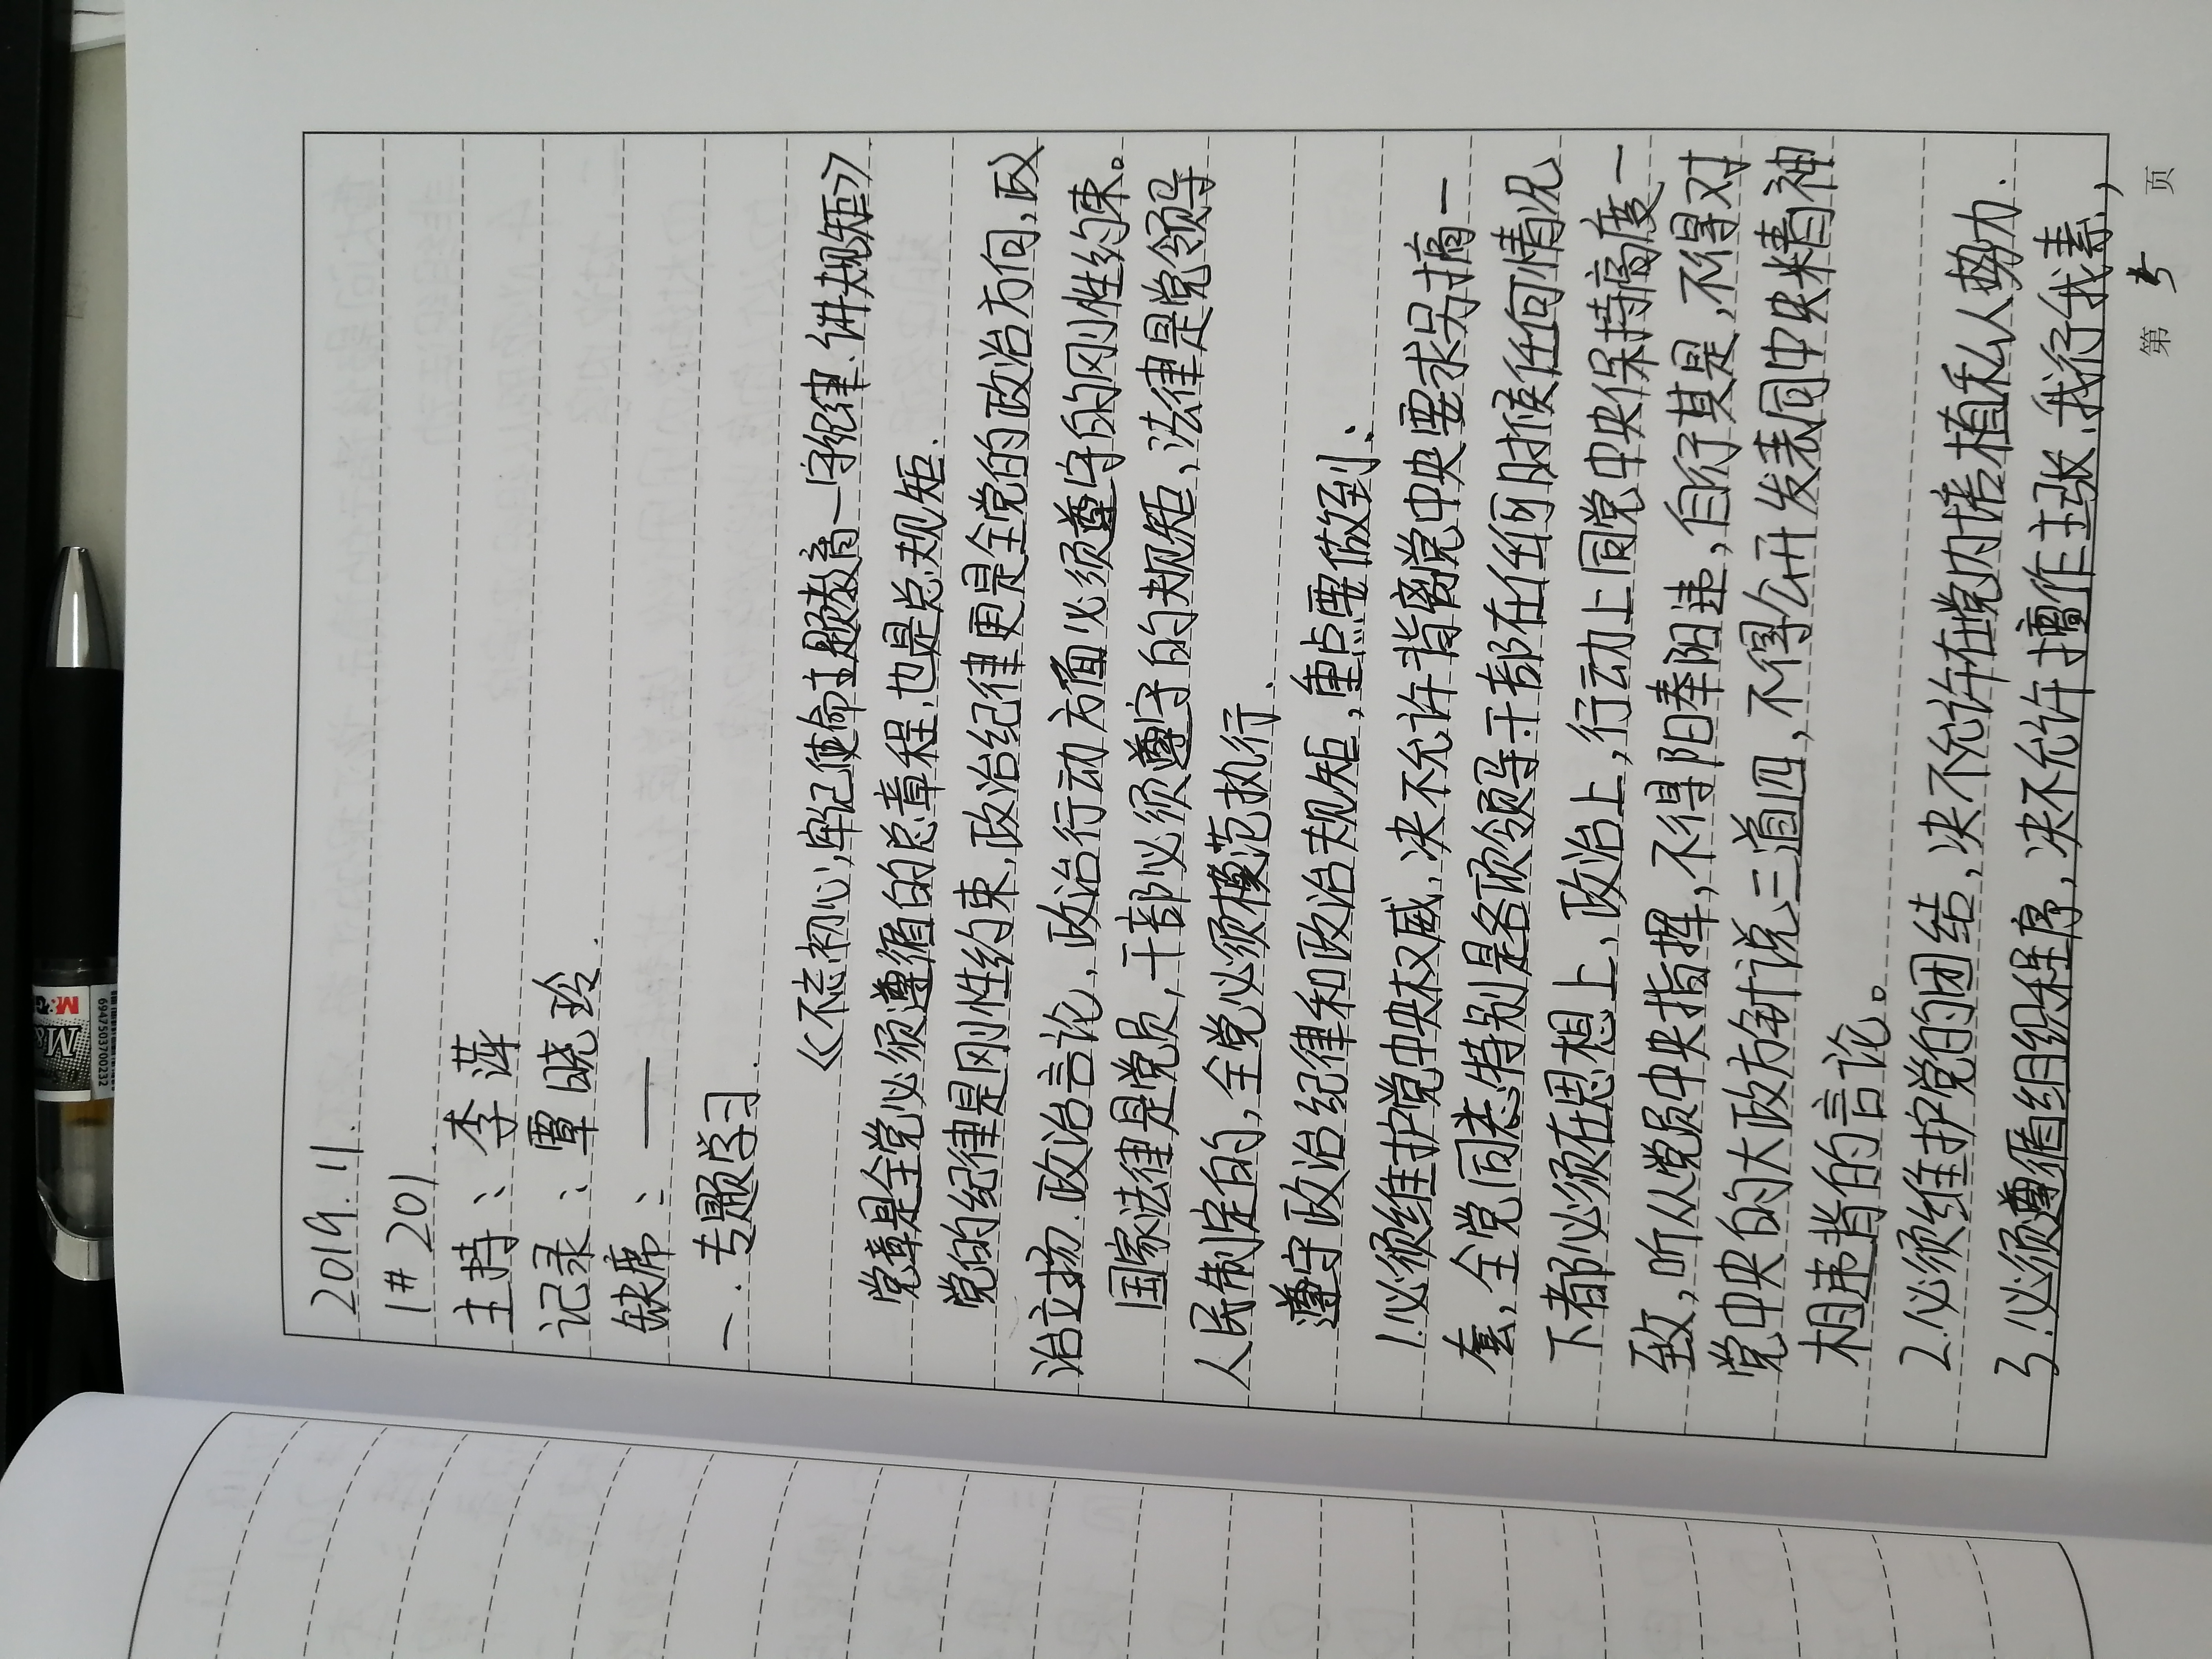 2019.11.
1# 201.
主持:李萍
记录:覃晓玲.
缺席:——
一.专题学习.
《不忘初心,牢记使命主题教育—守纪律、讲规矩》
党章是全党必须遵循的总章程,也是总规矩.
党的纪律是刚性约束,政治纪律更是全党的政治方向,政
治立场.政治言论,政治行动方面必须遵守的刚性约束。
国家法律是党员,干部必须遵守的规矩,法律是党领导
人民制定的,全党必须模范执行.
遵守政治纪律和政治规矩,重点要做到:
1.必须维护党中央权威,决不允许背离党中央要求另搞一
套,全党同志特别是各级领导干部在任何时候任何情况
下都必须在思想上,政治上,行动上同党中央保持高度一
致,听从党员中央指挥,不得阳奉阴违,自行其是,不得对
党中央的大政方针说三道四,不得公开发表同中央精神
相违背的言论。
2.必须维护党的团结,决不允许在党内培植私人势力.
3.必须遵循组织程序,决不允许擅作主张、我行我素,
第 页
M&G
6947503700232